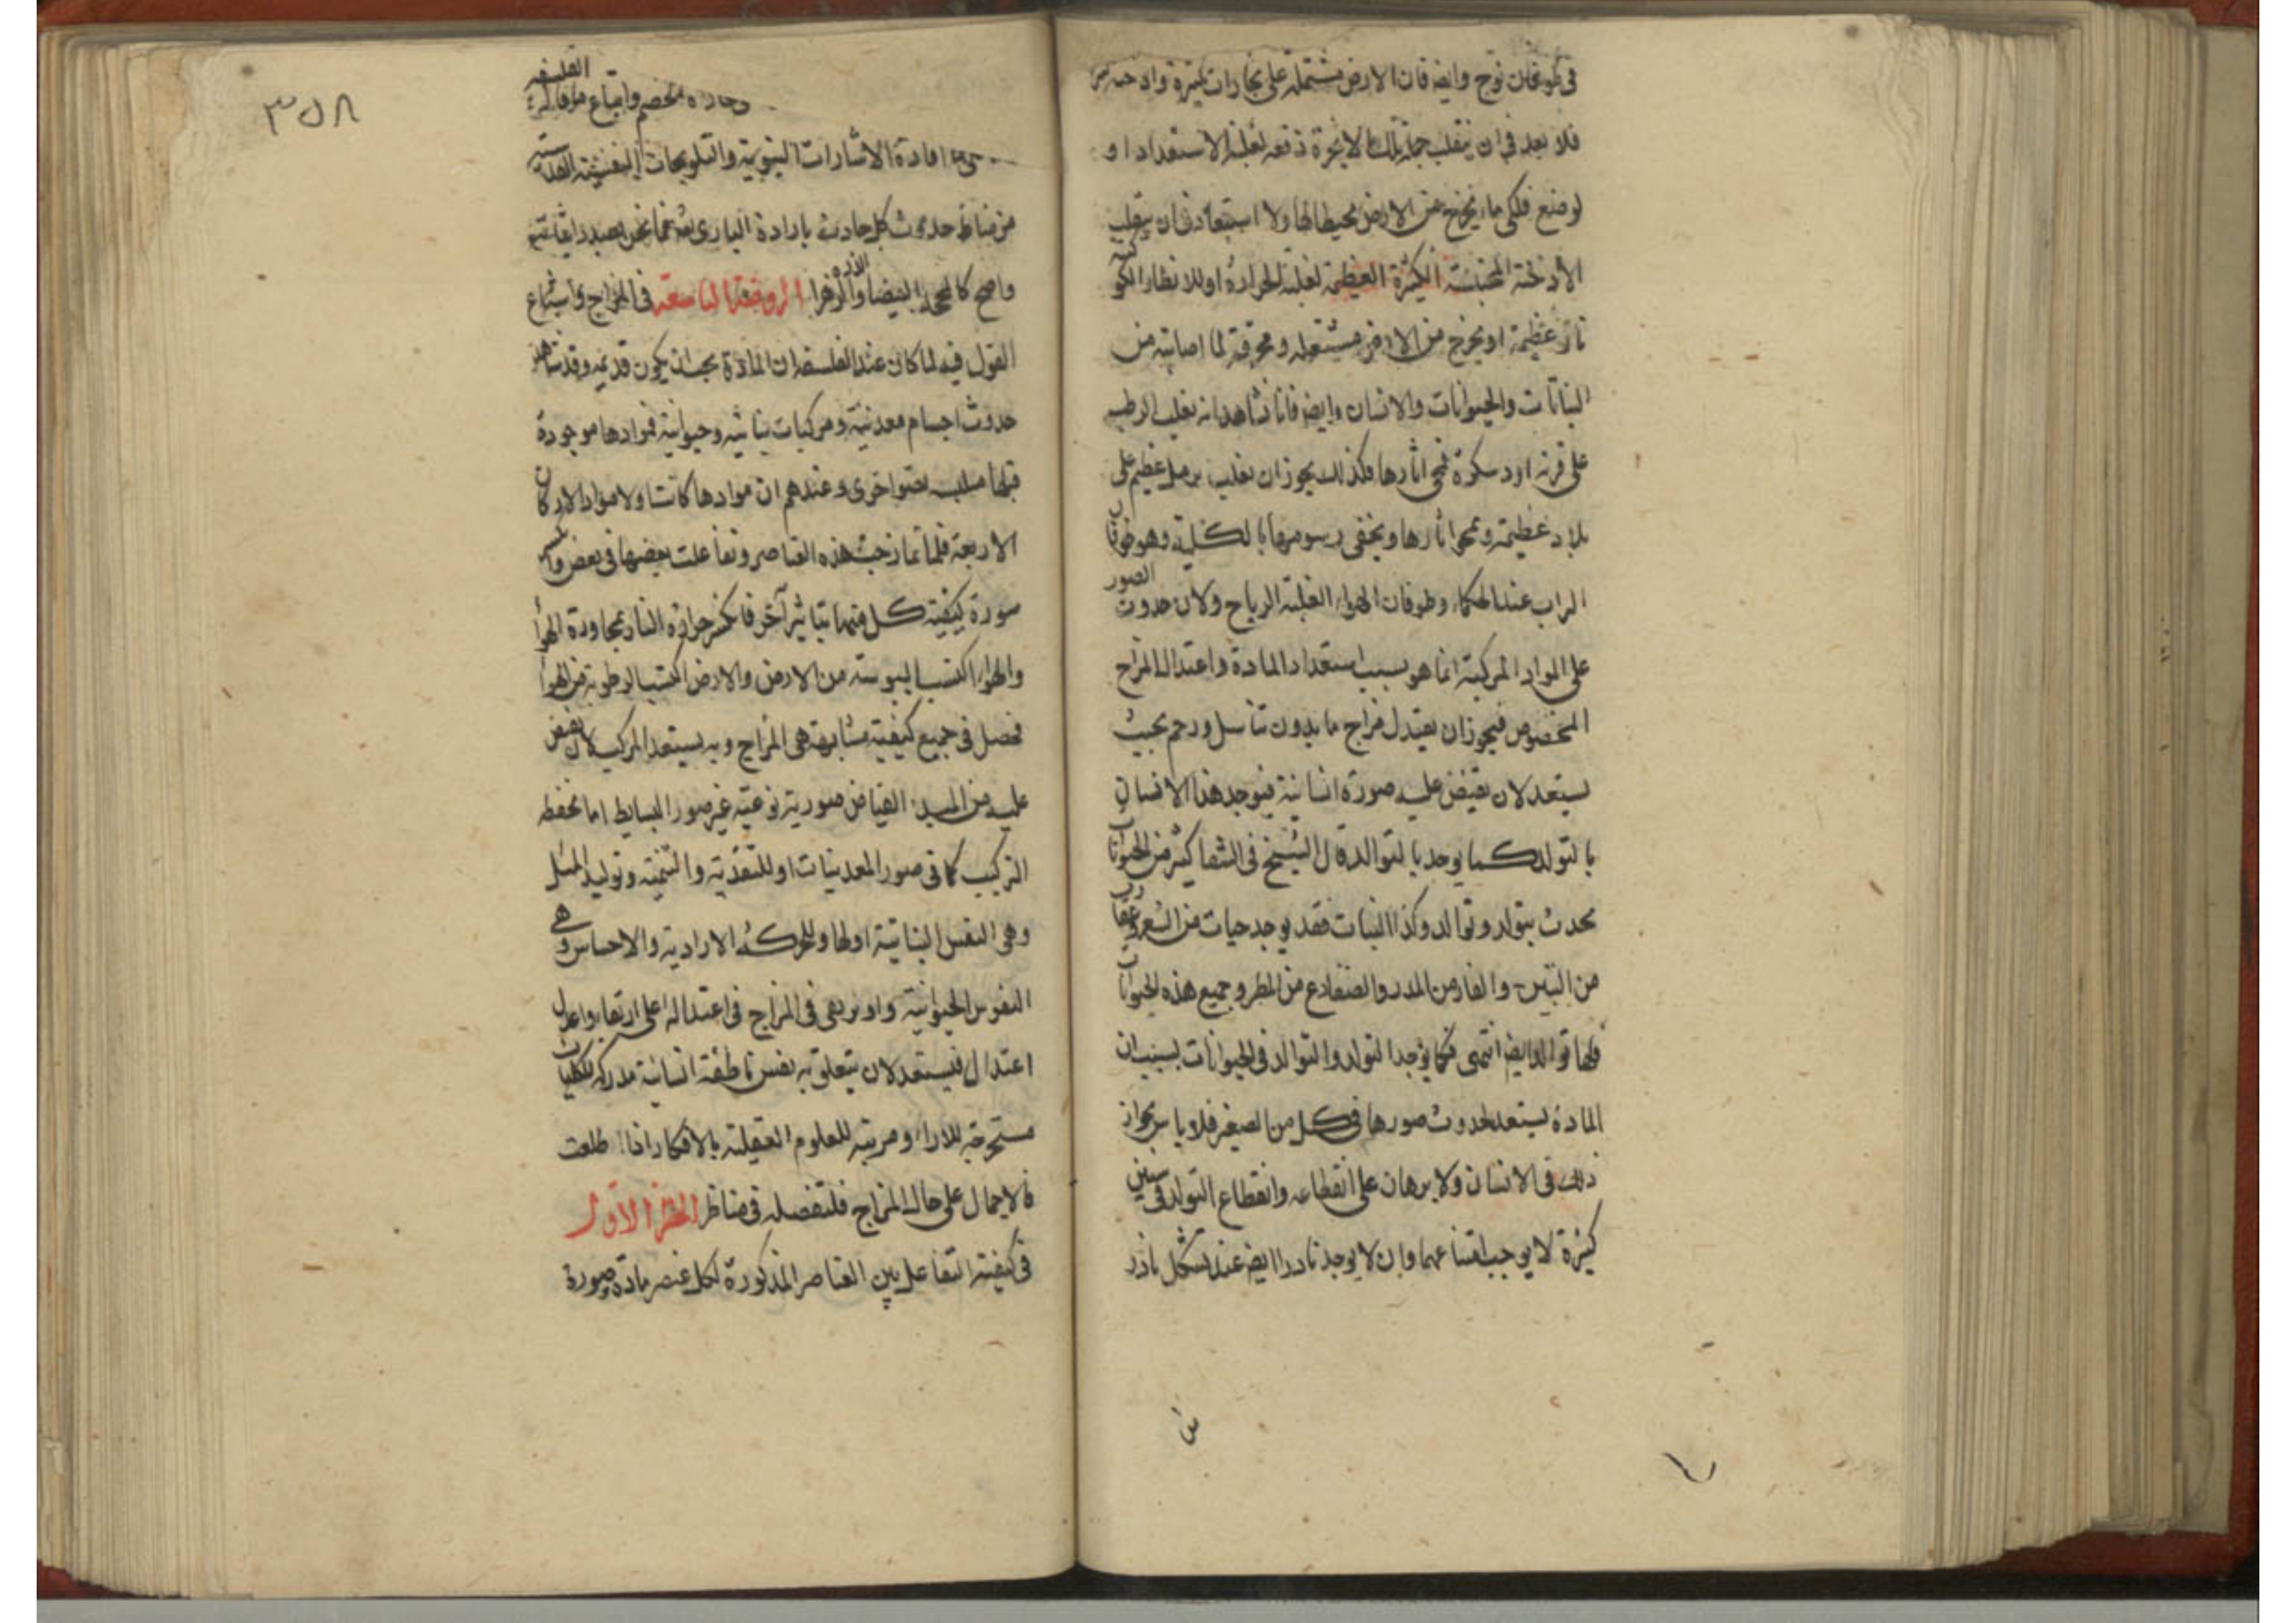 في طوفان نوح وايضا فان الارض مشتملة على بخارات كثيرة وادخنة
فلا بعد في ان ينقلب جملة تلك الابخرة دفعة لغلبة الاستعداد او
لوضع فلكي ماء يخرج من الارض محيطا لها ولا استبعاد في ان ينقلب
الأدخنة المحتبسة الكثيرة العظيمة لغلبة الحرارة او للانظار الكوكبية
نار عظيمة او يخرج من الارض مشتعلة ومحرقة لما اصابته من
النباتات والحيوانات والانسان وايضا فانا نشاهد انه يغلب الرطب
على قرية او دسكرة فمحى اثارها فكذلك يجوز ان يغلب رمل عظيم على
بلاد عظيمة ويمحو اثارها ويخفى رسومها بالكلية وهو طوفان
التراب عند الحكماء وطوفان الهواء لغلبة الرياح ولان حدوث الصور
على المواد المركبة انما هو بسبب استعداد المادة واعتدال المزاج
المخصوص فيجوز ان يعتدل مزاج ما بدون تناسل ورحم بحيث
يستعد لان تفيض عليه صورة انسانية فيوجد هذا الانسان
بالتولد كما يوجد بالتوالد قال الشيخ في الشفا كثير من الحيوانات
يحدث بتولد وتوالد وكذا النبات فقد يوجد حيات من الشعر وعقارب
من التبن والفار من المدر والضفادع من المطر وجميع هذه الحيوانات
فلها توالد ايضا انتهى فكما يوجد التولد والتوالد في الحيوانات بسبب ان
المادة يستعد لحدوث صورها في كل من الصغير فلا باس بجواز
ذلك في الانسان ولا برهان على انقطاعه وانقطاع التولد في سنين
كثيرة لا يوجب امتناعها وان لا يوجد نادرا ايضا عند تشكل نادر
٣٥٨
الفلسفة
واتباع
افادة الاشارات النبوية والتلويحات النفيسة
من مناط حدوث كل حادث بارادة الباري تعالى فما نحن بصدد
واضح كالمحجة البيضاء والدرة الزهرا الروضة التاسعة في المزاج واشباع
القول فيه لما كان عند الفلسفة ان المادة يجب ان يكون قديمة وقد شاهد
حدوث اجسام معدنية ومركبات نباتية وحيوانية فموادها موجودة
قبلها متلبسة بصور اخرى وعندهم ان موادها كانت اولا مواد الاركان
الاربعة فلما تمازجت هذه العناصر وتفاعلت بعضها في بعض وانكسر
سورة كيفية كل منها بتاثير آخر فانكسر حرارة النار بمجاورة الهوا
والهواء اكتسب اليبوسة من الارض والارض اكتسب الرطوبة من الهوا
فحصل في جميع كيفية متشابهة هي المزاج وبه يستعد المركب لان يفيض
عليه من المبدء الفياض صورية نوعية غير صور البسايط اما لحفظ
التركيب كما في صور المعدنيات او للتغذية والتنمية وتوليد المثل
وهي النفس النباتية اولها وللحركة الارادية والاحساس وهي
النفوس الحيوانية واو ترقى في المزاج في اعتداله اعلى ارتقاء واعدل
اعتدال فيستعد لان يتعلق به نفس ناطقة انسانية مدركة للكليات
مستخرجة للاراء ومرتبة للعلوم العقلية بالافكار اذا اطلعت
بالاجمال على حال المزاج فلتفصله في مناظر المنظر الاول
في كيفية التفاعل بين العناصر المذكورة لكل عنصر مادة وصورة